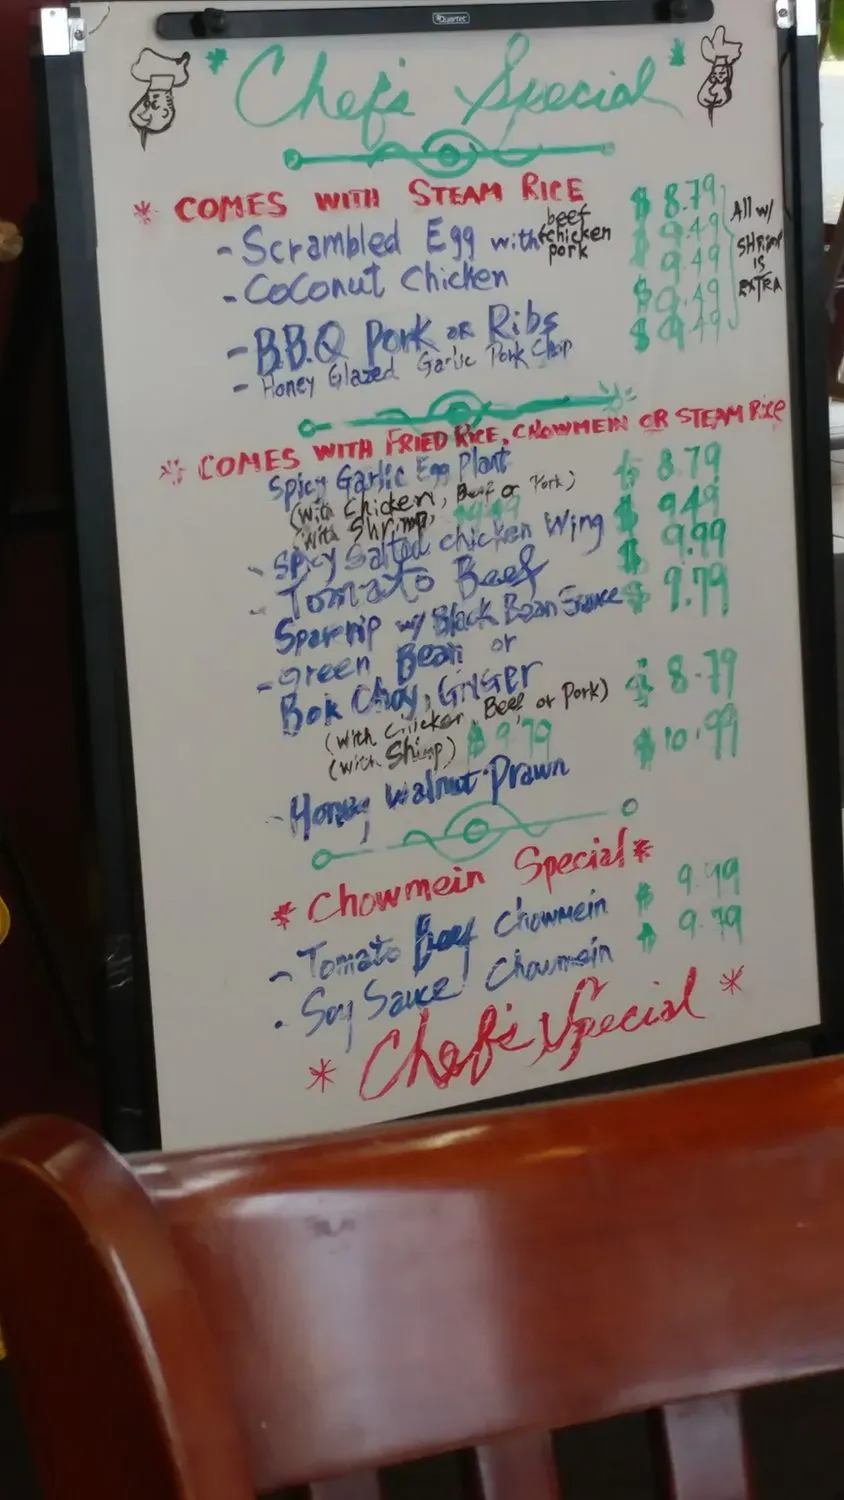 Quartet
* Chef's Special *
* COMES WITH STEAM RICE
- Scrambled Egg with beef chicken pork $ 8.79
- Coconut Chicken 9.49
9.49
- B.B.Q Pork or Ribs $ 9.49
- Honey Glazed Garlic Pork Chop $ 9.49
All w/
SHRIMP
IS
EXTRA
* COMES WITH FRIED RICE, CHOWMEIN OR STEAM RICE
Spicy Garlic Egg Plant $ 8.79
(with Chicken, Beef or Pork)
(with Shrimp)
- Spicy Salted chicken Wing $ 9.49
- Tomato Beef $ 9.99
Sparerip w/ Black Bean Sauce $ 9.79
- Green Bean or
Bok Choy, Ginger $ 8.79
(with Chicken, Beef or Pork)
(with Shimp) $ 9.79
- Honey Walnut Prawn $ 10.99
* Chowmein Special *
- Tomato Beef Chowmein $ 9.49
- Soy Sauce Chowmein $ 9.79
* Chef's Special *